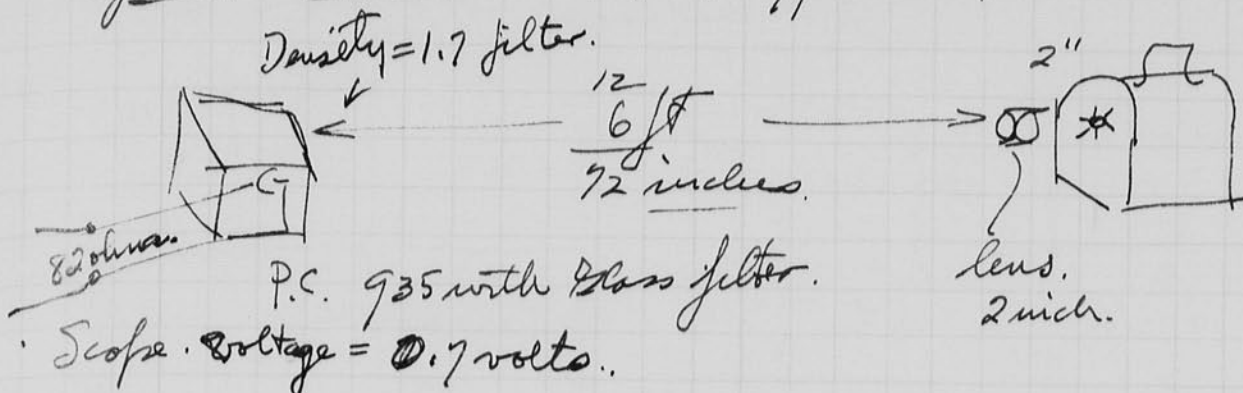 Density = 1.7 filter.
2"
12
6 ft
72 inches.
82 ohms.
P.C. 935 with Glass filter.
lens.
2 inch.
Scope. voltage = 0.7 volts..